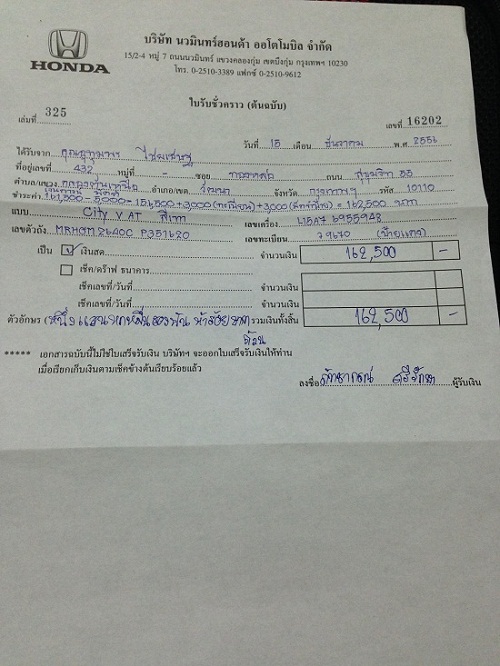 บริษัท นวมินทร์ฮอนด้า ออโตโมบิล จำกัด
15/2-4 หมู่ 7 ถนนนวมินทร์ แขวงคลองกุ่ม เขตบึงกุ่ม กรุงเทพฯ 10230
HONDA
โทร. 0-2510-3389 แฟกซ์ 0-2510-9612
ใบรับชั่วคราว (ต้นฉบับ)
เล่มที่ 325 เลขที่ 16202
วันที่ 15 เดือน ธันวาคม พ.ศ 2556
ได้รับจาก
ที่อยู่เลขที่ 492 หมู่ที่ - ซอย ถนน สุขุมวิท 55
ตำบล/แขวง คลองตันเหนือ อำเภอ/เขต วัฒนา จังหวัด กรุงเทพฯ รหัส 10110
ชำระค่า 161,500 - 5,000 = 156,500 + 3,000 (ทะเบียน) + 3,000 = 162,500 บาท
แบบ City V AT สีเทา เลขเครื่อง L15A7 6955948
เลขตัวถัง MRHGM26400 P351620 เลขทะเบียน ว 9670 (ป้ายแดง)
เป็น เงินสด จำนวนเงิน 162,500 -
เช็ค/ดร๊าฟ ธนาคาร
เช็คเลขที่/วันที่ จำนวนเงิน
เช็คเลขที่/วันที่ จำนวนเงิน
ตัวอักษร (หนึ่งแสนหกหมื่นสองพันห้าร้อยบาท รวมเงินทั้งสิ้น 162,500 -
ถ้วน
***** เอกสารฉบับนี้ไม่ใช่ใบเสร็จรับเงิน บริษัทฯ จะออกใบเสร็จรับเงินให้ท่าน
เมื่อเรียกเก็บเงินตามเช็คข้างต้นเรียบร้อยแล้ว
ลงชื่อ ผู้รับเงิน